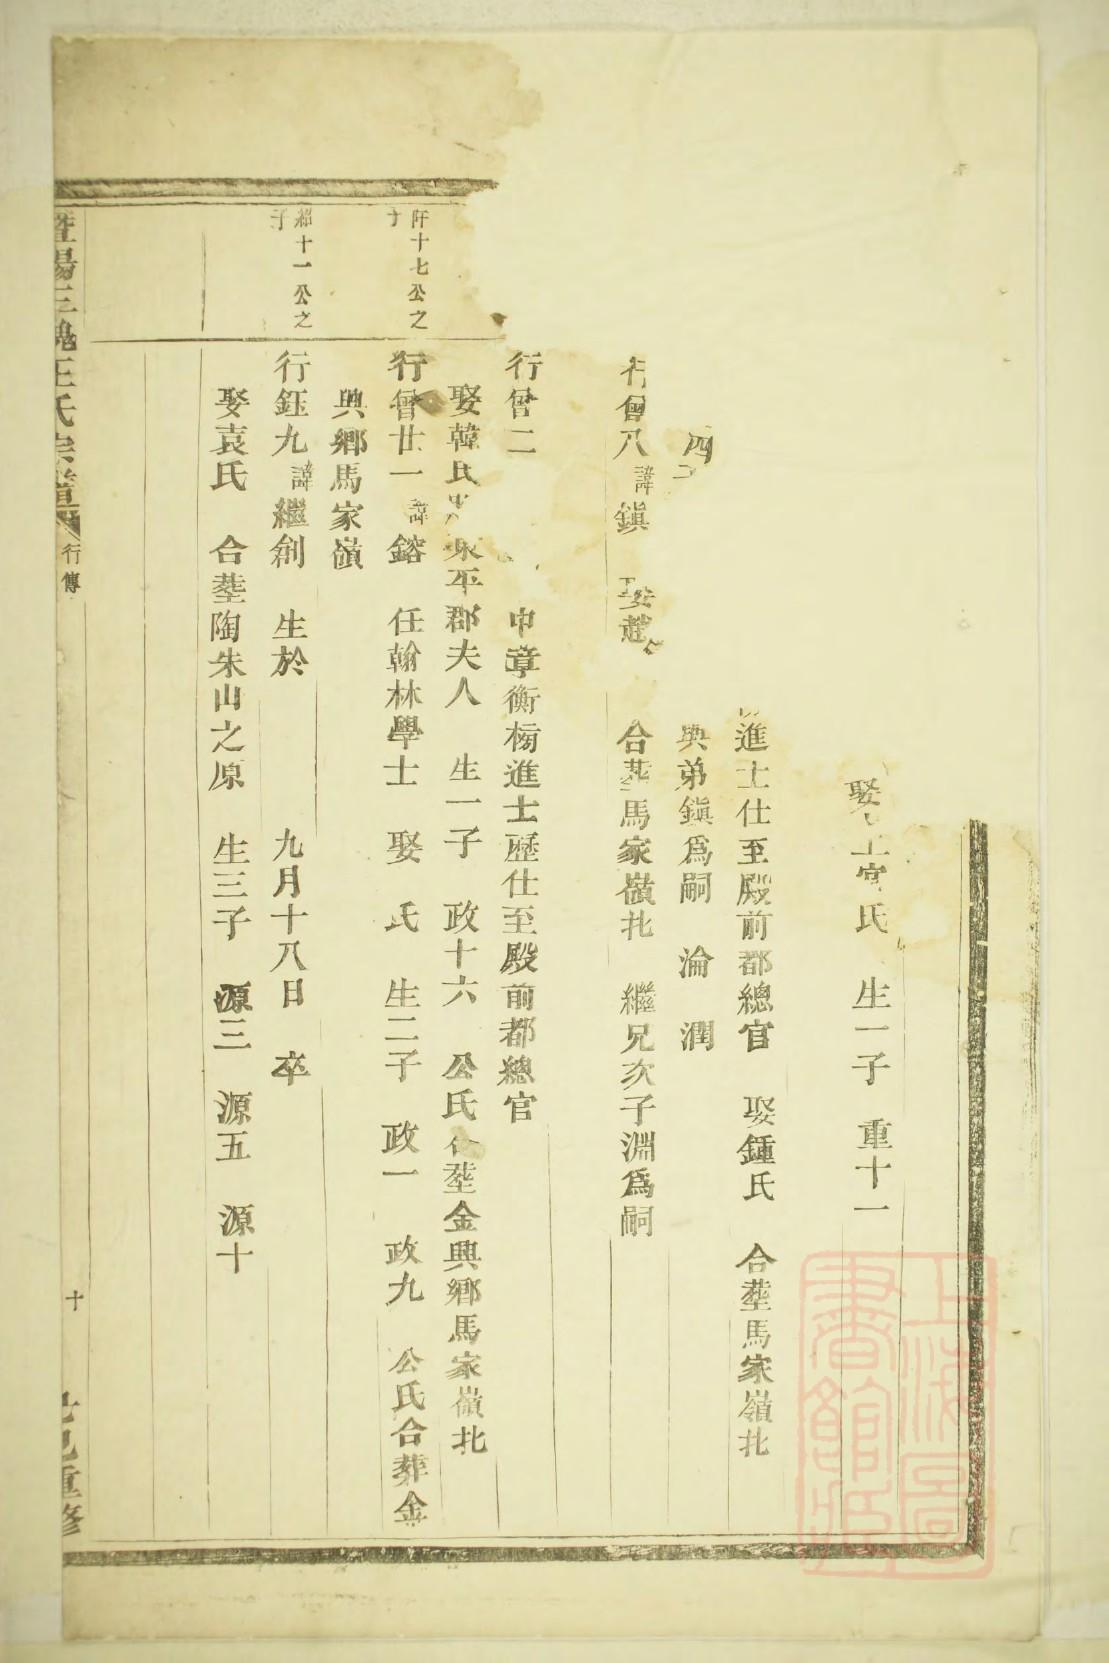 娶上官氏 生一子 重十一
進士仕至殿前都總官 娶鍾氏 合塟馬家嶺北
四 與弟鎮爲嗣 淪 潤
行曾八諱鎮 娶趙 合塟馬家嶺北 繼兄次子淵爲嗣
行曾二 中章衡榜進士歷仕至殿前都總官
娶韓氏 東平郡夫人 生一子 政十六 公氏合塟金興鄉馬家嶺北
阡十七公之子
行曾廿一諱鎔 任翰林學士 娶 氏 生二子 政一 政九 公氏合葬金
興鄉馬家嶺
紹十一公之子
行鈺九諱繼創 生於 九月十八日 卒
娶袁氏 合塟陶朱山之原 生三子 源三 源五 源十
暨陽三槐王氏宗譜 行傳 十 己重修
上海圖書館藏